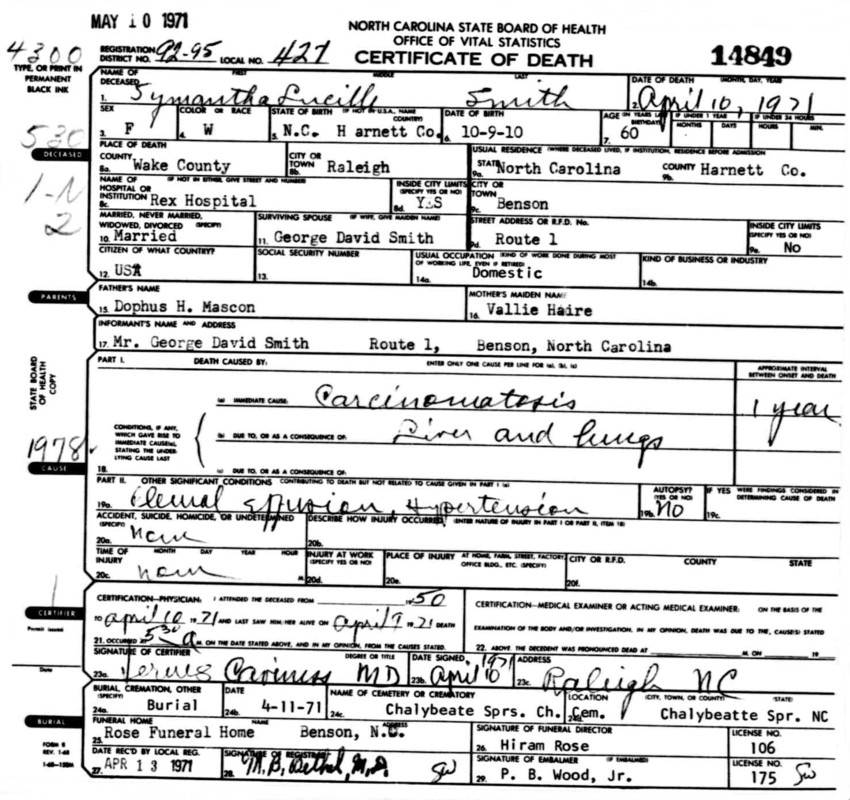 MAY 10 1971
NORTH CAROLINA STATE BOARD OF HEALTH
OFFICE OF VITAL STATISTICS
CERTIFICATE OF DEATH
14849
4300
REGISTRATION DISTRICT NO. 92-95 LOCAL NO. 427
TYPE, OR PRINT IN PERMANENT BLACK INK
NAME OF DECEASED FIRST MIDDLE LAST
1. Symantha Lucille Smith
DATE OF DEATH (MONTH, DAY, YEAR)
2. April 10, 1971
SEX
3. F
COLOR OR RACE
4. W
STATE OF BIRTH (IF NOT IN U.S.A., NAME COUNTRY)
5. N.C. Harnett Co.
DATE OF BIRTH
6. 10-9-10
AGE (IN YEARS LAST BIRTHDAY)
7. 60
IF UNDER 1 YEAR
MONTHS DAYS
IF UNDER 24 HOURS
HOURS MIN.
530
DECEASED
1-N
2
PLACE OF DEATH
COUNTY
8a. Wake County
CITY OR TOWN
8b. Raleigh
USUAL RESIDENCE (WHERE DECEASED LIVED, IF INSTITUTION, RESIDENCE BEFORE ADMISSION
STATE
9a. North Carolina
COUNTY
9b. Harnett Co.
NAME OF HOSPITAL OR INSTITUTION (IF NOT IN EITHER, GIVE STREET AND NUMBER)
8c. Rex Hospital
INSIDE CITY LIMITS (SPECIFY YES OR NO)
8d. YES
CITY OR TOWN
9c. Benson
MARRIED, NEVER MARRIED, WIDOWED, DIVORCED (SPECIFY)
10. Married
SURVIVING SPOUSE (IF WIFE, GIVE MAIDEN NAME)
11. George David Smith
STREET ADDRESS OR R.F.D. No.
9d. Route 1
INSIDE CITY LIMITS (SPECIFY YES OR NO)
9e. No
CITIZEN OF WHAT COUNTRY?
12. USA
SOCIAL SECURITY NUMBER
13.
USUAL OCCUPATION (KIND OF WORK DONE DURING MOST OF WORKING LIFE, EVEN IF RETIRED)
14a. Domestic
KIND OF BUSINESS OR INDUSTRY
14b.
PARENTS
FATHER'S NAME
15. Dophus H. Mascon
MOTHER'S MAIDEN NAME
16. Vallie Haire
INFORMANT'S NAME AND ADDRESS
17. Mr. George David Smith Route 1, Benson, North Carolina
STATE BOARD OF HEALTH COPY
1978
CAUSE
PART I. DEATH CAUSED BY: ENTER ONLY ONE CAUSE PER LINE FOR (a), (b), (c)
APPROXIMATE INTERVAL BETWEEN ONSET AND DEATH
(a) IMMEDIATE CAUSE: Carcinomatosis 1 year
CONDITIONS, IF ANY, WHICH GAVE RISE TO IMMEDIATE CAUSE(a), STATING THE UNDERLYING CAUSE LAST
(b) DUE TO, OR AS A CONSEQUENCE OF: Liver and lungs
18. (c) DUE TO, OR AS A CONSEQUENCE OF:
PART II. OTHER SIGNIFICANT CONDITIONS CONTRIBUTING TO DEATH BUT NOT RELATED TO CAUSE GIVEN IN PART I (a)
19a. Pleural effusion, Hypertension
AUTOPSY? (YES OR NO)
19b. NO
IF YES WERE FINDINGS CONSIDERED IN DETERMINING CAUSE OF DEATH
19c.
ACCIDENT, SUICIDE, HOMICIDE, OR UNDETERMINED (SPECIFY)
20a. None
DESCRIBE HOW INJURY OCCURRED (ENTER NATURE OF INJURY IN PART I OR PART II, ITEM 18)
20b.
TIME OF INJURY MONTH DAY YEAR HOUR
20c. None M.
INJURY AT WORK (SPECIFY YES OR NO)
20d.
PLACE OF INJURY AT HOME, FARM, STREET, FACTORY, OFFICE BLDG., ETC. (SPECIFY)
20e.
CITY OR R.F.D. COUNTY STATE
20f.
1
CERTIFIER
Permit issued
Date
CERTIFICATION-PHYSICIAN: I ATTENDED THE DECEASED FROM 1950
TO April 10 1971 AND LAST SAW HIM/HER ALIVE ON April 9 1971 DEATH
21. OCCURRED AT 530 A M. ON THE DATE STATED ABOVE, AND IN MY OPINION, FROM THE CAUSES STATED.
CERTIFICATION-MEDICAL EXAMINER OR ACTING MEDICAL EXAMINER: ON THE BASIS OF THE
EXAMINATION OF THE BODY AND/OR INVESTIGATION, IN MY OPINION, DEATH WAS DUE TO THE, CAUSE(S) STATED
22. ABOVE. THE DECEDENT WAS PRONOUNCED DEAD AT M. ON 19
SIGNATURE OF CERTIFIER DEGREE OR TITLE
23a. MD
DATE SIGNED
23b. April 10 1971
ADDRESS
23c. Raleigh NC
BURIAL
BURIAL, CREMATION, OTHER (SPECIFY)
24a. Burial
DATE
24b. 4-11-71
NAME OF CEMETERY OR CREMATORY
24c. Chalybeate Sprs. Ch. Cem.
LOCATION (CITY, TOWN, OR COUNTY) (STATE)
24d. Chalybeatte Spr. NC
FUNERAL HOME NAME ADDRESS
25. Rose Funeral Home Benson, N.C.
SIGNATURE OF FUNERAL DIRECTOR
26. Hiram Rose
LICENSE NO.
106
FORM 8
REV. 1-68
DATE REC'D BY LOCAL REG.
27. APR 13 1971
SIGNATURE OF REGISTRAR
28. M. B. Bethel, M.D.
SIGNATURE OF EMBALMER (IF EMBALMED)
29. P. B. Wood, Jr.
LICENSE NO.
175